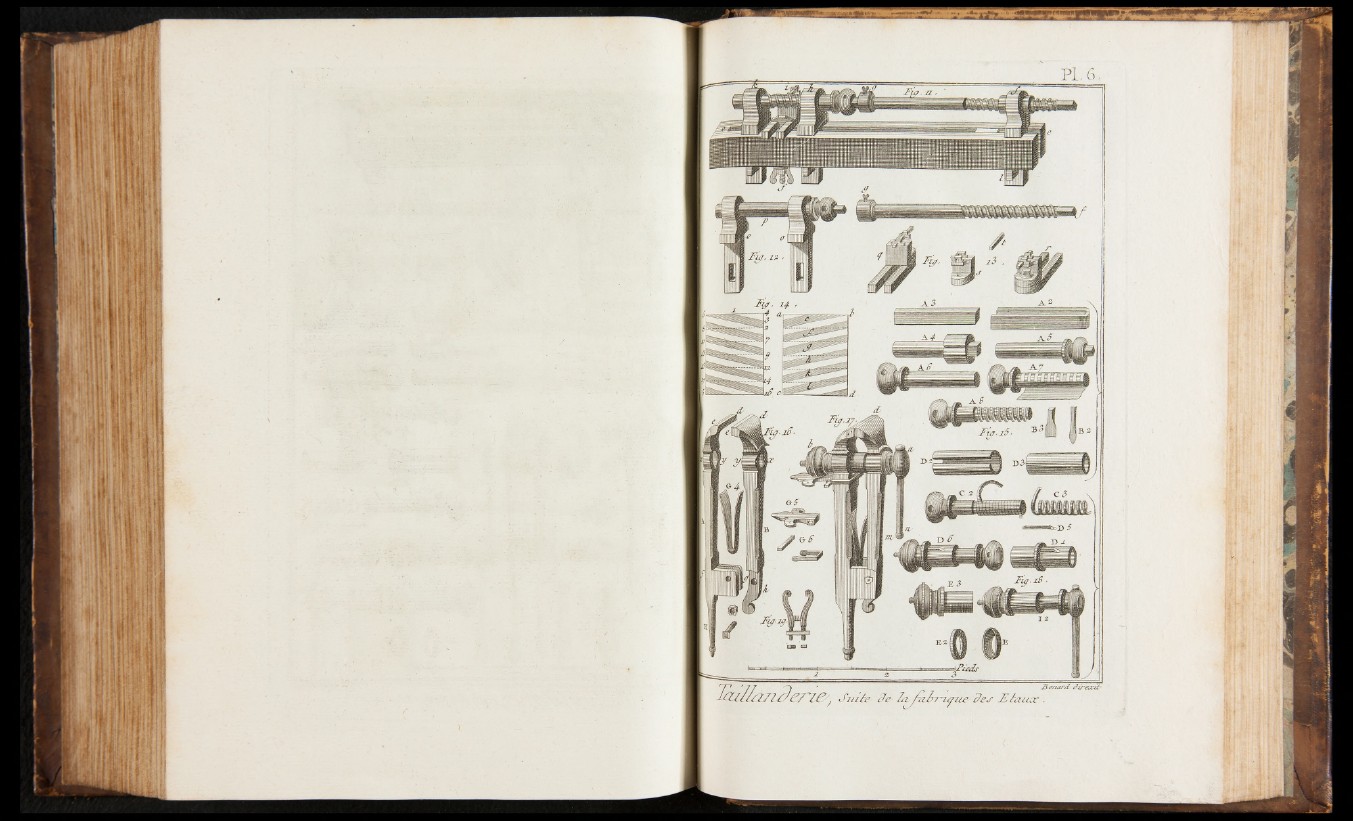 Pl. 6.
k i h g Fig. 11. f
e
l
g
p g f
o o
Fig. 12.
q Fig. 13. t r
s
Fig. 14.
1 4 a b
3 e
2 f
7 g
9 h
11 k
14 l
16 c d
A 3 A 2
A 4 A 5
A 6 A 7
A 8
Fig. 15. B 3 B 2
d d Fig. 17. d
e e Fig. 16.
b a
y y x D 2 D 3
G 4 G 5 C 2 C 3
B n D 5
G 6 m D 6 D 4
g h E 3 Fig. 18.
I 2
Fig. 19. E 2 E
1 2 3 Pieds
Benard Direxit
Taillanderie, Suite de la fabrique des Etaux.